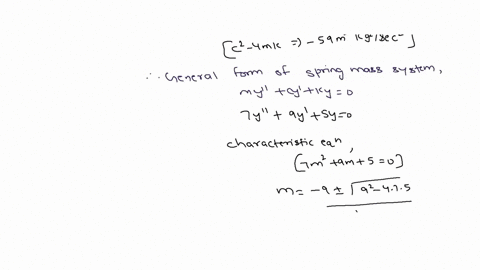 [c²-4mk => -59m² kg²/sec²]
∴ General form of spring mass system,
my'' + cy' + ky = 0
7y'' + 9y' + 5y = 0
characteristic eqn,
[7m² + 9m + 5 = 0]
m = -9 ± √9²-4.7.5